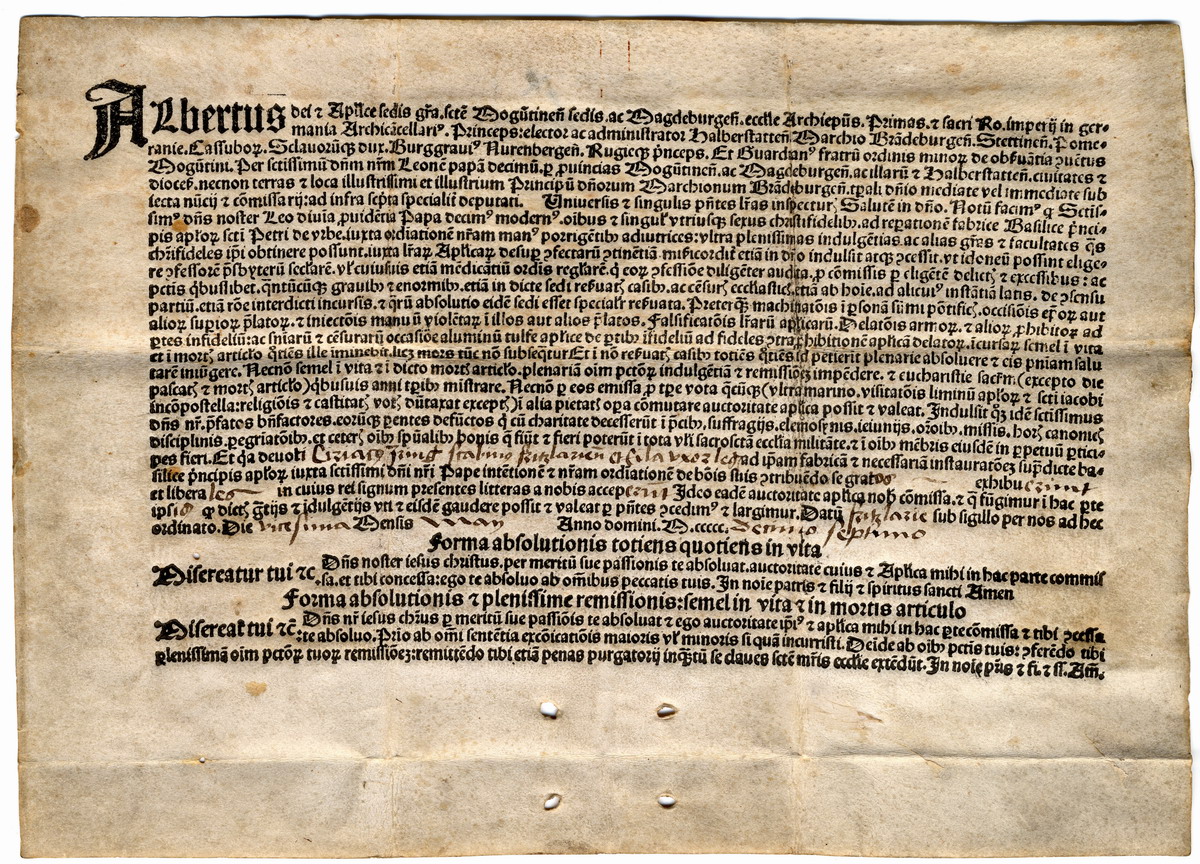 Albertus dei ⁊ Aplice sedis gr̃a. sctẽ Mogũtineñ sedis. ac Magdeburgeñ. ecclie Archiepũs. Primas. ⁊ sacri Ro. imperij in ger⸗
mania Archicãcellari⁹. Princeps: elector ac administrator Halberstatteñ Marchio Brãdeburgeñ. Stettineñ. Pome⸗
ranie. Cassuboꝝ. Sclauorũq̃ dux. Burggraui⁹ Nurenbergeñ. Rugieq̃ p̃nceps. Et Guardian⁹ fratrũ ordinis minoꝝ de obẜuãtia ꝯuẽtus
Mogũtini. Per sctissimũ dñm nr̃m Leonẽ papã decimũ. ꝑ ꝓuincias Mogũtineñ. ac Magdeburgeñ. ac illarũ ⁊ Halberstatteñ. ciuitates ⁊
dioceẜ. necnon terras ⁊ loca illustrissimi et illustrium Principũ dñorum Marchionum Brãdeburgeñ. tp̃ali dñio mediate vel immediate sub
iecta nũcij ⁊ cõmissarij: ad infra sc̃pta specialit̃ deputati. Vniuersis ⁊ singulis pñtes lr̃as inspecturꝭ Salutẽ in dño. Notũ facim⁹ ꝙ Sctis⸗
sim⁹ dñs noster Leo diuĩa ꝓuidẽtia Papa decim⁹ modern⁹. oibus ⁊ singul̃ vtriusq̃ sexus christifidelibꝫ. ad reꝑationẽ fabrice Basilice p̃nci⸗
pis apl̃oꝝ scti Petri de vrbe. iuxta ordiationẽ nr̃am man⁹ porrigẽtibꝫ adiutrices: vltra plenissimas indulgẽtias. ac alias gr̃as ⁊ facultates q̃s
chr̃ifideles ip̃i obtinere possunt. iuxta lr̃aꝝ Apl̃icaꝝ desuꝑ ꝯfectarũ ꝯtinẽtiã. mis̃icordit̃ etiã in dño indulsit atq̃ ꝯcessit. vt idoneũ possint elige⸗
re ꝯfessorẽ p̃sbyterũ sec̃larẽ. vl̃ cuiusuis etiã medicãtiũ ordĩs regl̃arẽ. q̃ eoꝝ ꝯfessiõe diligẽter audita. ꝓ cõmissis ꝑ eligẽtẽ delictꝭ ⁊ excessibus: ac
pctĩs q̃buslibet. qñtũcũq̃ grauibꝫ ⁊ enormibꝫ. etiã in dicte sedi reẜuatꝭ casibꝫ. ac cẽsurꝭ eccl̃iasticꝭ. etiã ab hoĩe. ad alicui⁹ instãtiã latis. de ꝯsensu
partiũ. etiã rõe interdicti incursis. ⁊ q̃rũ absolutio eidẽ sedi esset special̃r reẜuata. Preterq̃ machinatõis ĩ ꝑsonã sũmi põtificꝭ. occisiõis ep̃oꝝ aut
alioꝝ suꝑioꝝ p̃latoꝝ. ⁊ iniectõis manuũ violẽtaꝝ ĩ illos aut alios p̃latos. Falsificatõis lr̃arũ apl̃icarũ. Delatõis armoꝝ. ⁊ alioꝝ ꝓhibitoꝝ ad
ꝑtes infideliũ: ac sñiarũ ⁊ cẽsurarũ occasiõe aluminũ tulfe apl̃ice de ꝑtibꝫ ĩfideliũ ad fideles ꝯtra ꝓhibitionẽ apl̃icã delatoꝝ. ĩcursaꝝ semel ĩ vita
et ĩ mortꝭ articl̃o q̃tiẽs ille ĩminebit. licꝫ mors tũc nõ subseq̃tur Et ĩ nõ reẜuatꝭ casibꝫ totiẽs q̃tiẽs id petierit plenarie absoluere ⁊ eis pñiam salu
tarẽ iniũgere. Necnõ semel ĩ vita ⁊ ĩ dicto mortꝭ articl̃o. plenariã oĩm pctõꝝ indulgẽtiã ⁊ remissiõeꝫ impẽdere. ⁊ eucharistie sacr̃m (excepto die
pascatꝭ ⁊ mortꝭ articl̃o) q̃busuis anni tꝑibꝫ ministrare. Necnõ ꝑ eos emissa ꝓ tꝑe vota q̃cũq̃ (vltramarino. visitatõis liminũ apl̃oꝝ ⁊ scti iacobi
incõpostella: religiõis ⁊ castitatꝭ votꝭ dũtaxat exceptꝭ) ĩ alia pietatꝭ oꝑa cõmutare auctoritate apl̃ica possit ⁊ valeat. Indulsit q̃ꝫ idẽ sctissimus
dñs nr̃. p̃fatos bñfactores. eorũq̃ ꝑentes defũctos q̃ cũ charitate decesserũt ĩ p̃cibꝫ. suffragijs. elemosinis. ieiunijs. orõibꝫ. missis. horꝭ canonicꝭ
disciplinis. ꝑegriatõibꝫ. et ceterꝭ oĩbꝫ spũalibꝫ bonis q̃ fiũt ⁊ fieri poterũt ĩ tota vl̃i sacrosctã eccl̃ia militãte. ⁊ ĩ oĩbꝫ mẽbris eiusdẽ in ꝑpetuũ ꝑtici⸗
pes fieri. Et q̃a deuoti Ciriacꝰ jung Fritzlarien et Eila vxor leg̃ ad ip̃am fabricã ⁊ necessariã instauratõeꝫ sup̃dicte ba⸗
silice p̃ncipis apl̃oꝝ iuxta sctissimi dñi nr̃i Pape intẽtionẽ ⁊ nr̃am ordiationẽ de bõis suis ꝯtribuẽdo se gratos exhibuerunt
et libera les in cuius rei signum presentes litteras a nobis acceperunt Idco eadẽ auctoritate apl̃ica nobꝭ cõmissa. ⁊ q̃ fũgimur ĩ hac ꝑte
ipsis ꝙ dictꝭ gr̃ijs ⁊ ĩdulgẽtijs vti ⁊ eisdẽ gaudere possit ⁊ valeat ꝑ pñtes ꝯcedim⁹ ⁊ largimur. Datũ fritzlarie sub sigillo per nos ad hec
ordinato. Die vicesima Mensis May Anno domini. M.ccccc. decimo septimo
Forma absolutionis totiens quotiens in vita
Misereatur tui ⁊c̃. Dñs noster iesus christus. per meritũ sue passionis te absoluat. auctoritate cuius ⁊ Apl̃ica mihi in hac parte commis
sa. et tibi concessa: ego te absoluo ab omĩbus peccatis tuis. In noĩe patris ⁊ filij ⁊ spiritus sancti Amen
Forma absolutionis ⁊ plenissime remissionis: semel in vita ⁊ in mortis articulo
Misereat̃ tui ⁊c̃. Dñs nr̃ iesus chr̃us ꝑ meritũ sue passiõis te absoluat ⁊ ego auctoritate ip̃i⁹ ⁊ apl̃ica mihi in hac ꝑte cõmissa ⁊ tibi ꝯcessa
: te absoluo. Prĩo ab omĩ sentẽtia excõicatiõis maioris vl̃ minoris si quã incurristi. Deĩde ab oĩbꝫ pctĩs tuis: ꝯferẽdo tibi
plenissimã oĩm pctõꝝ tuoꝝ remissiõeꝫ: remittẽdo tibi etiã penas purgatorij inq̃tũ se claues sctẽ mr̃is eccl̃ie extẽdũt. In noĩe pr̃is ⁊ fi. ⁊ ss. Am̃.